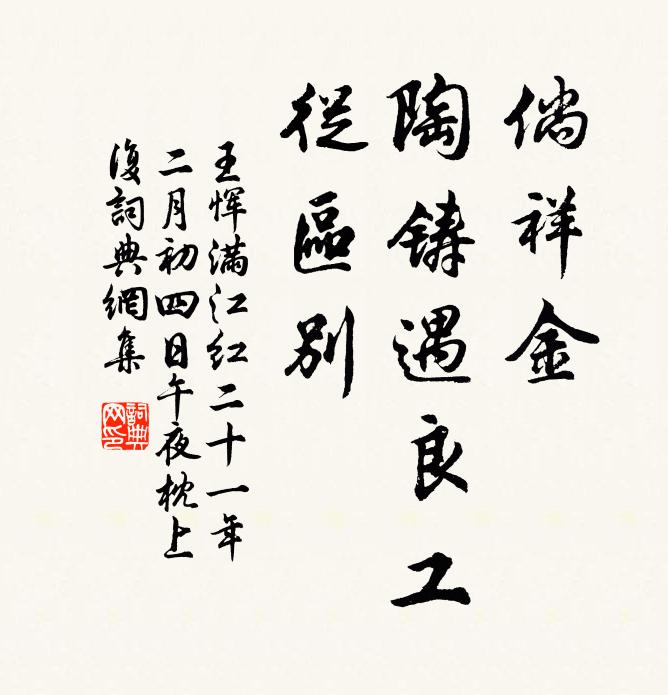 倘祥金
陶鑄遇良工
從區別
王惲滿江红二十一年
二月初四日午夜枕上
復詞典網集
詞典
网印